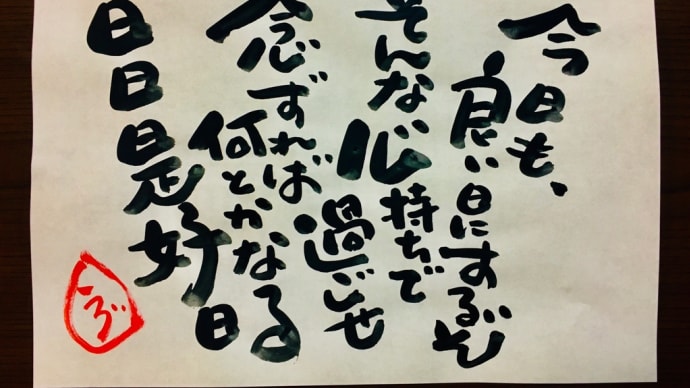 今日も、
良い日にするぞ
そんな心持ちで
過ごせ
念ずれば
何とかなる
日日是好日